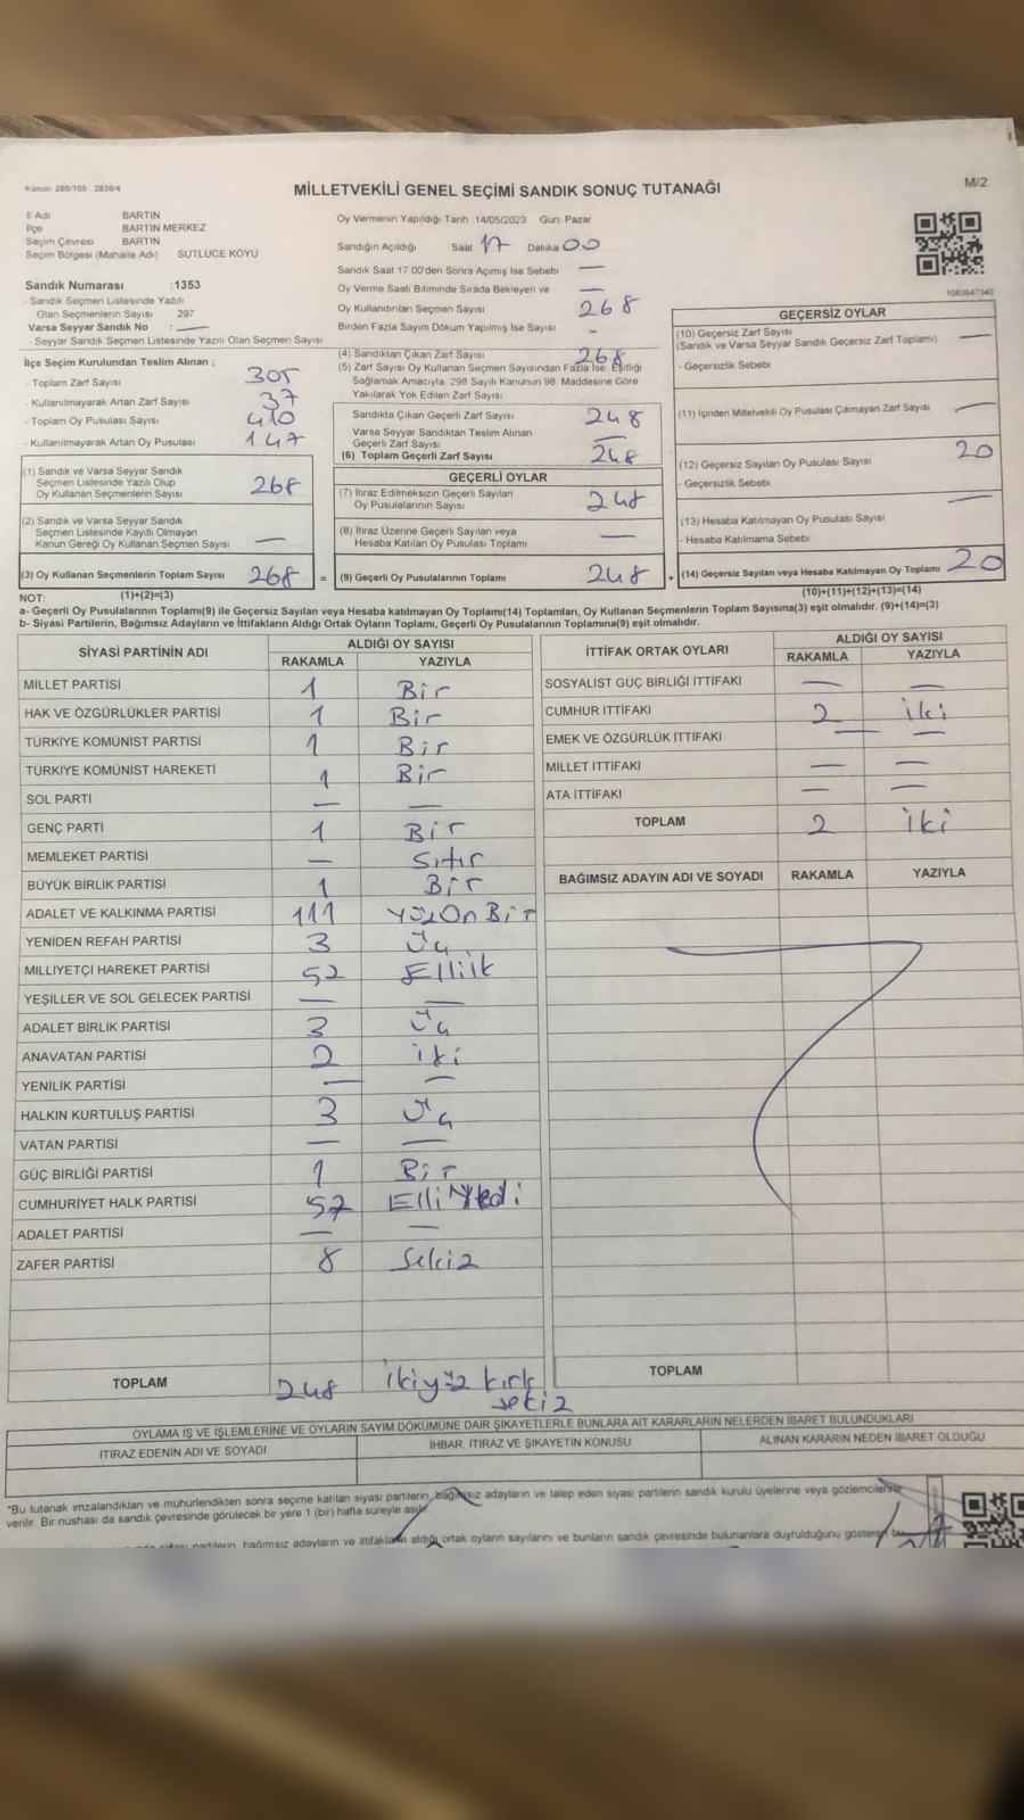 MİLLETVEKİLİ GENEL SEÇİMİ SANDIK SONUÇ TUTANAĞI
M/2
İl Adı BARTIN
İlçe BARTIN MERKEZ
Seçim Çevresi BARTIN
Seçim Bölgesi (Mahalle Adı) SÜTLÜCE KÖYÜ
Sandık Numarası :1353
- Sandık Seçmen Listesinde Yazılı
Olan Seçmenlerin Sayısı 297
Varsa Seyyar Sandık No : —
- Seyyar Sandık Seçmen Listesinde Yazılı Olan Seçmen Sayısı
İlçe Seçim Kurulundan Teslim Alınan ;
- Toplam Zarf Sayısı 305
- Kullanılmayarak Artan Zarf Sayısı 37
- Toplam Oy Pusulası Sayısı 410
- Kullanılmayarak Artan Oy Pusulası 147
(1) Sandık ve Varsa Seyyar Sandık
Seçmen Listesinde Yazılı Olup
Oy Kullanan Seçmenlerin Sayısı 268
(2) Sandık ve Varsa Seyyar Sandık
Seçmen Listesinde Kayıtlı Olmayan
Kanun Gereği Oy Kullanan Seçmen Sayısı —
(3) Oy Kullanan Seçmenlerin Toplam Sayısı 268 =
(1)+(2)=(3)
Oy Vermenin Yapıldığı Tarih :14/05/2023 Gün: Pazar
Sandığın Açıldığı Saat 17 Dakika 00
Sandık Saat 17:00'den Sonra Açılmış İse Sebebi —
Oy Verme Saati Bitiminde Sırada Bekleyen ve —
Oy Kullandırılan Seçmen Sayısı 268
Birden Fazla Sayım Döküm Yapılmış İse Sayısı -
(4) Sandıktan Çıkan Zarf Sayısı 268
(5) Zarf Sayısı Oy Kullanan Seçmen Sayısından Fazla İse, Eşitliği
Sağlamak Amacıyla, 298 Sayılı Kanunun 98. Maddesine Göre
Yakılarak Yok Edilen Zarf Sayısı
Sandıkta Çıkan Geçerli Zarf Sayısı 248
Varsa Seyyar Sandıktan Teslim Alınan
Geçerli Zarf Sayısı —
(6) Toplam Geçerli Zarf Sayısı 248
GEÇERLİ OYLAR
(7) İtiraz Edilmeksizin Geçerli Sayılan
Oy Pusulalarının Sayısı 248
(8) İtiraz Üzerine Geçerli Sayılan veya
Hesaba Katılan Oy Pusulası Toplamı —
(9) Geçerli Oy Pusulalarının Toplamı 248 +
GEÇERSİZ OYLAR
(10) Geçersiz Zarf Sayısı —
(Sandık ve Varsa Seyyar Sandık Geçersiz Zarf Toplamı)
- Geçersizlik Sebebi
(11) İçinden Milletvekili Oy Pusulası Çıkmayan Zarf Sayısı —
(12) Geçersiz Sayılan Oy Pusulası Sayısı 20
- Geçersizlik Sebebi
(13) Hesaba Katılmayan Oy Pusulası Sayısı —
- Hesaba Katılmama Sebebi
(14) Geçersiz Sayılan veya Hesaba Katılmayan Oy Toplamı 20
(10)+(11)+(12)+(13)=(14)
NOT:
a- Geçerli Oy Pusulalarının Toplamı(9) ile Geçersiz Sayılan veya Hesaba katılmayan Oy Toplamı(14) Toplamları, Oy Kullanan Seçmenlerin Toplam Sayısına(3) eşit olmalıdır. (9)+(14)=(3)
b- Siyasi Partilerin, Bağımsız Adayların ve İttifakların Aldığı Ortak Oyların Toplamı, Geçerli Oy Pusulalarının Toplamına(9) eşit olmalıdır.
SİYASİ PARTİNİN ADI
ALDIĞI OY SAYISI
RAKAMLA YAZIYLA
MİLLET PARTİSİ 1 Bir
HAK VE ÖZGÜRLÜKLER PARTİSİ 1 Bir
TÜRKİYE KOMÜNİST PARTİSİ 1 Bir
TÜRKİYE KOMÜNİST HAREKETİ 1 Bir
SOL PARTİ — —
GENÇ PARTİ 1 Bir
MEMLEKET PARTİSİ — Sıfır
BÜYÜK BİRLİK PARTİSİ 1 Bir
ADALET VE KALKINMA PARTİSİ 111 YüzOnBir
YENİDEN REFAH PARTİSİ 3 Üç
MİLLİYETÇİ HAREKET PARTİSİ 52
YEŞİLLER VE SOL GELECEK PARTİSİ — —
ADALET BİRLİK PARTİSİ 3 Üç
ANAVATAN PARTİSİ 2 iki
YENİLİK PARTİSİ — —
HALKIN KURTULUŞ PARTİSİ 3 Üç
VATAN PARTİSİ — —
GÜÇ BİRLİĞİ PARTİSİ 1 Bir
CUMHURİYET HALK PARTİSİ 57 Elli Yedi
ADALET PARTİSİ — —
ZAFER PARTİSİ 8 Sekiz
TOPLAM 248 ikiyüz kırk
sekiz
İTTİFAK ORTAK OYLARI
ALDIĞI OY SAYISI
RAKAMLA YAZIYLA
SOSYALİST GÜÇ BİRLİĞİ İTTİFAKI — —
CUMHUR İTTİFAKI 2 iki
EMEK VE ÖZGÜRLÜK İTTİFAKI — —
MİLLET İTTİFAKI — —
ATA İTTİFAKI — —
TOPLAM 2 iki
BAĞIMSIZ ADAYIN ADI VE SOYADI RAKAMLA YAZIYLA
TOPLAM
OYLAMA İŞ VE İŞLEMLERİNE VE OYLARIN SAYIM DÖKÜMÜNE DAİR ŞİKAYETLERLE BUNLARA AİT KARARLARIN NELERDEN İBARET BULUNDUKLARI
İTİRAZ EDENİN ADI VE SOYADI İHBAR, İTİRAZ VE ŞİKAYETİN KONUSU ALINAN KARARIN NEDEN İBARET OLDUĞU
"Bu tutanak imzalandıktan ve mühürlendikten sonra seçime katılan siyasi partilerin, bağımsız adayların ve talep eden siyasi partilerin sandık kurulu üyelerine veya gözlemcilerine
verilir. Bir nüshası da sandık çevresinde görülecek bir yere 1 (bir) hafta süreyle asılır.
partilerin, bağımsız adayların ve ittifakların aldığı ortak oyların sayılarını ve bunların sandık çevresinde bulunanlara duyrulduğunu gösteren